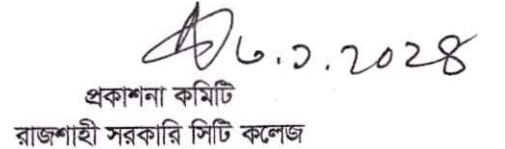 ৬.১.২০২৪
প্রকাশনা কমিটি
রাজশাহী সরকারি সিটি কলেজ